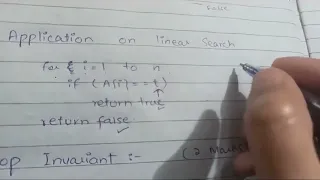 Application on linear Search
for i=1 to n
if (A[i]==t)
return true
return false
op Invariant :- (2 Marks